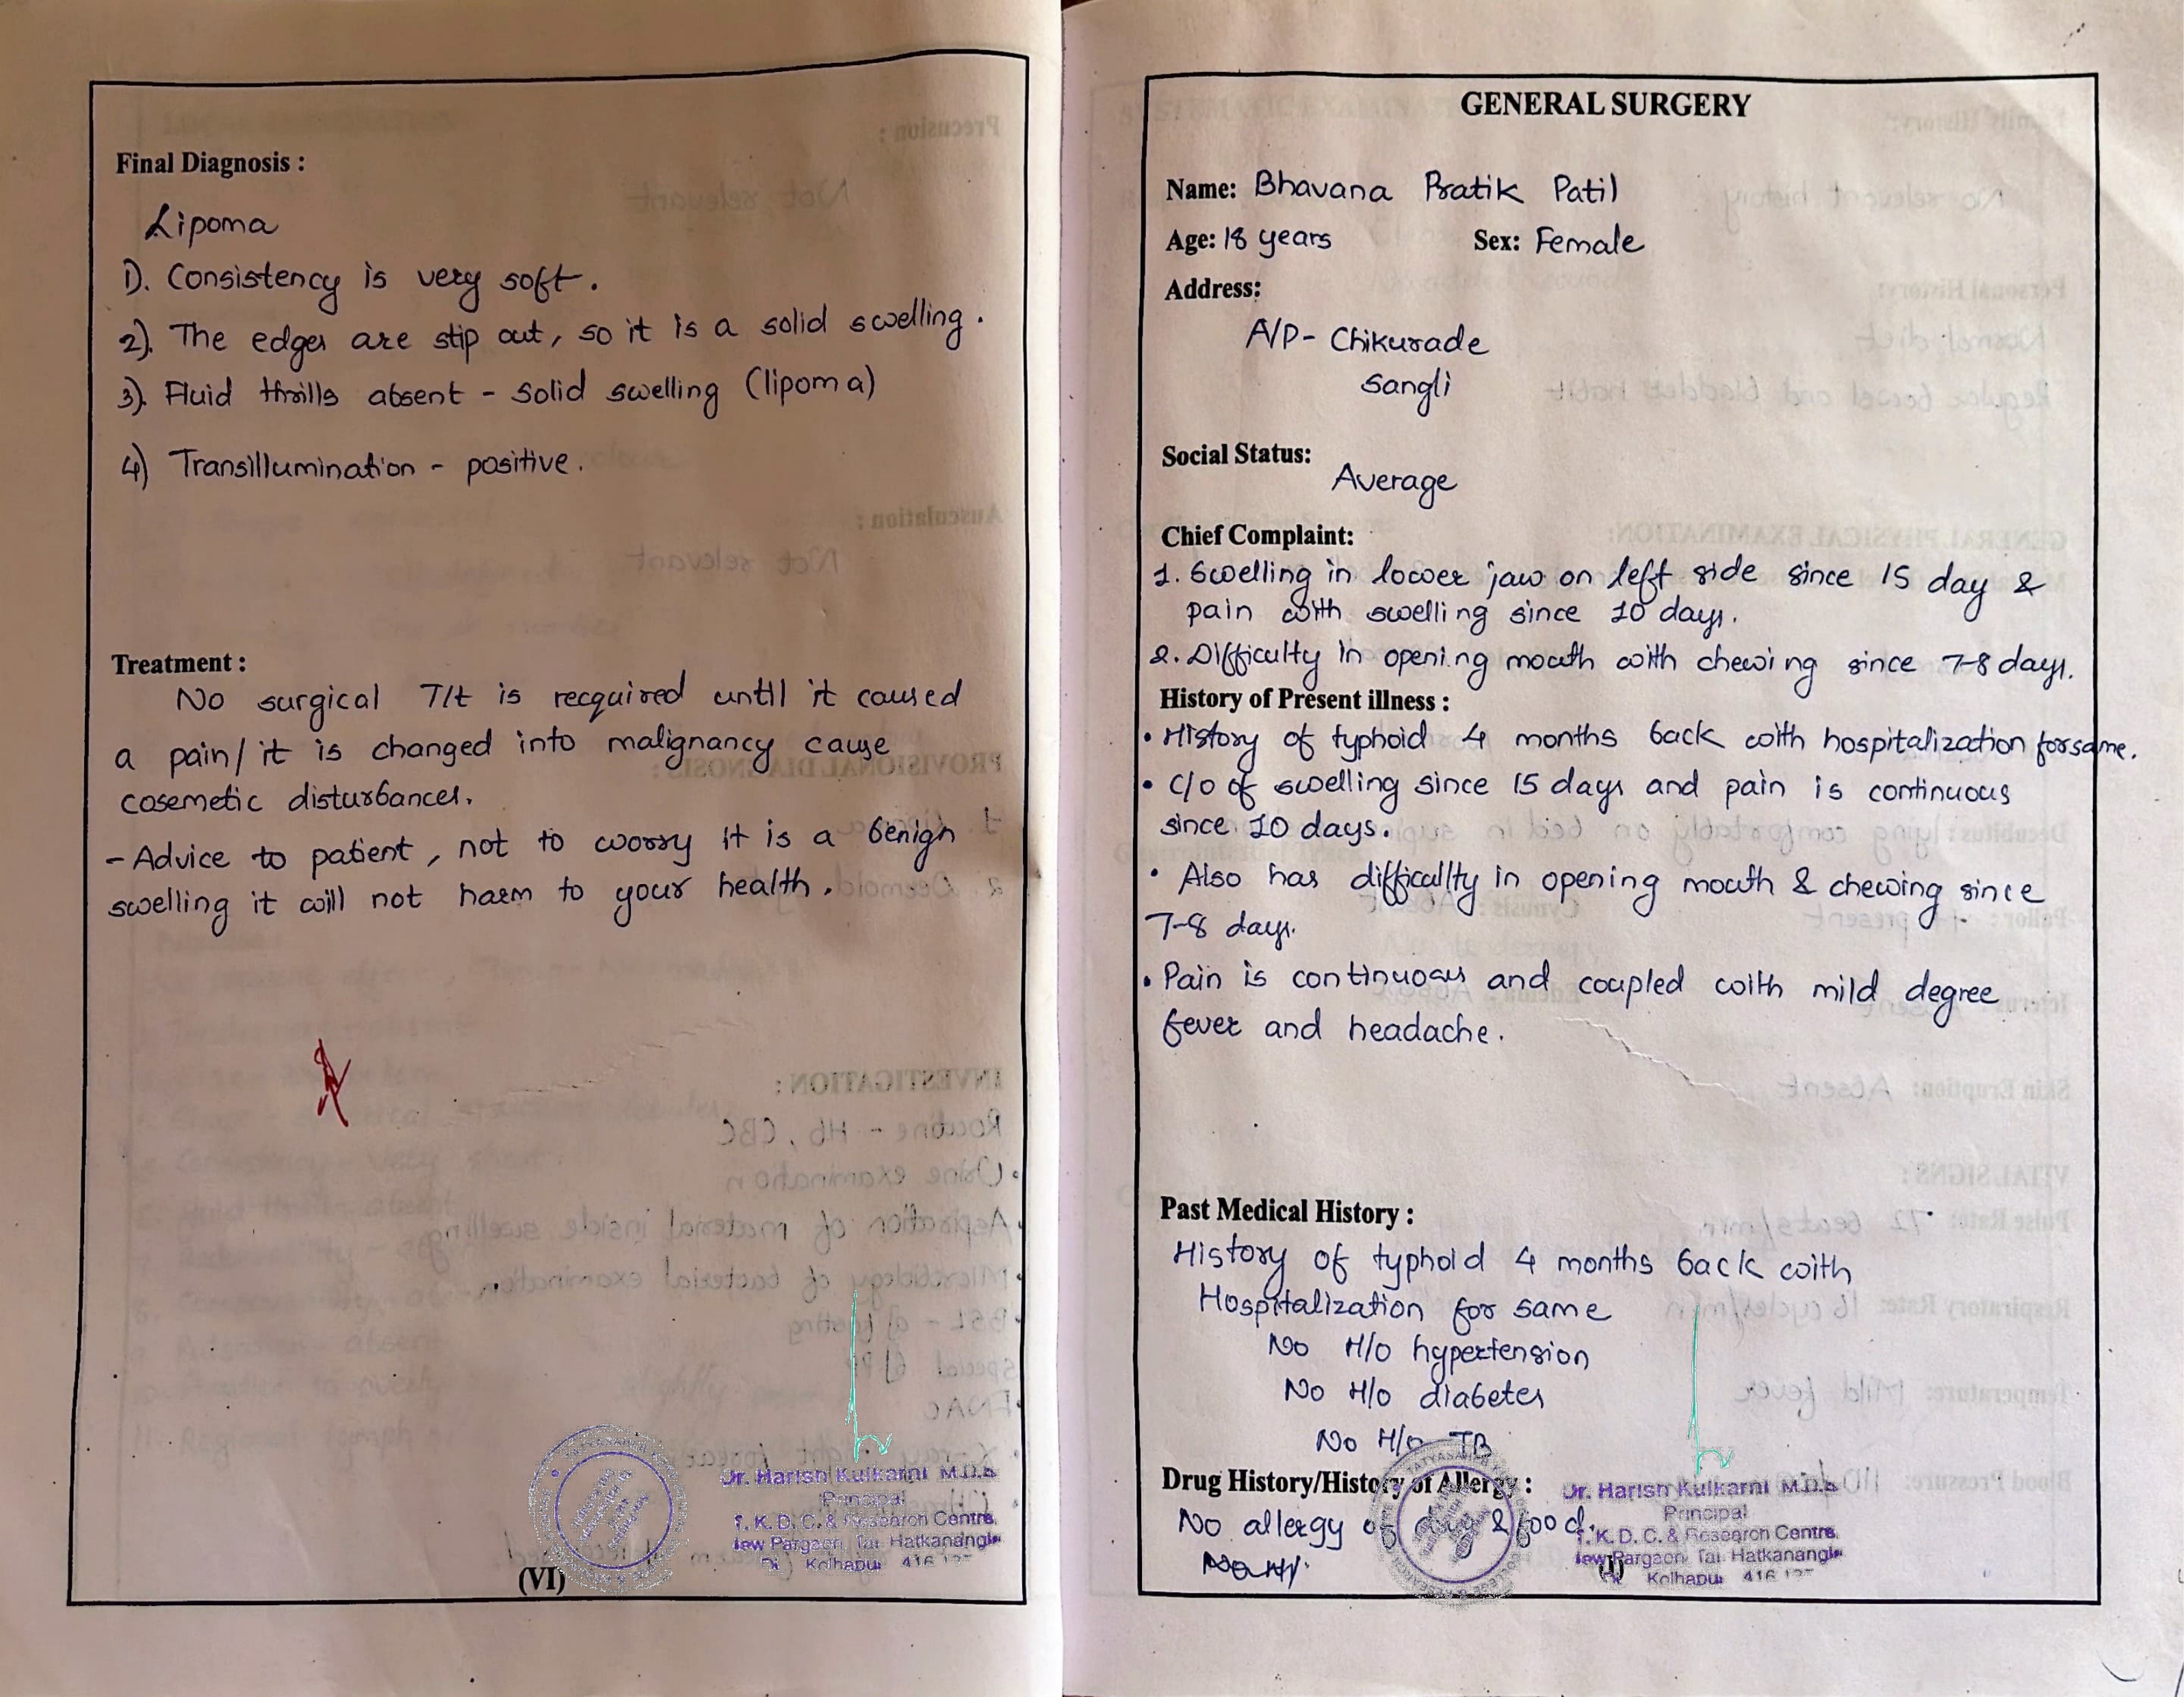 Final Diagnosis :
Lipoma
1). Consistency is very soft.
2). The edges are slip out, so it is a solid swelling.
3). Fluid thrills absent - solid swelling (lipoma)
4) Transillumination - positive.
Treatment :
No surgical T/t is recquired until it caused
a pain/ it is changed into malignancy cause
cosemetic disturbances.
- Advice to patient, not to worry it is a benign
swelling it will not harm to your health.
(VI)
Dr. Harish Kulkarni M.D.S
Principal
T. K. D. C. & Research Centre,
New Pargaon, Tal. Hatkanangle
Di. Kolhapur 416 137
GENERAL SURGERY
Name: Bhavana Pratik Patil
Age: 18 years Sex: Female
Address:
A/P- Chikurade
Sangli
Social Status:
Average
Chief Complaint:
1. Swelling in lower jaw on left side since 15 day &
pain with swelling since 10 days.
2. Difficulty in opening mouth with chewing since 7-8 days.
History of Present illness :
• History of typhoid 4 months back with hospitalization for same.
• C/o of swelling since 15 days and pain is continuous
since 10 days.
• Also has difficallty in opening mouth & chewing since
7-8 days.
• Pain is continuous and coupled with mild degree
fever and headache.
Past Medical History :
History of typhoid 4 months back with
Hospitalization for same
No H/o hypertension
No H/o diabetes
No H/o TB
Drug History/History of Allergy :
No allergy of drug & food.
(I)
Dr. Harish Kulkarni M.D.S
Principal
T. K. D. C. & Research Centre,
New Pargaon, Tal. Hatkanangle
Di. Kolhapur 416 137